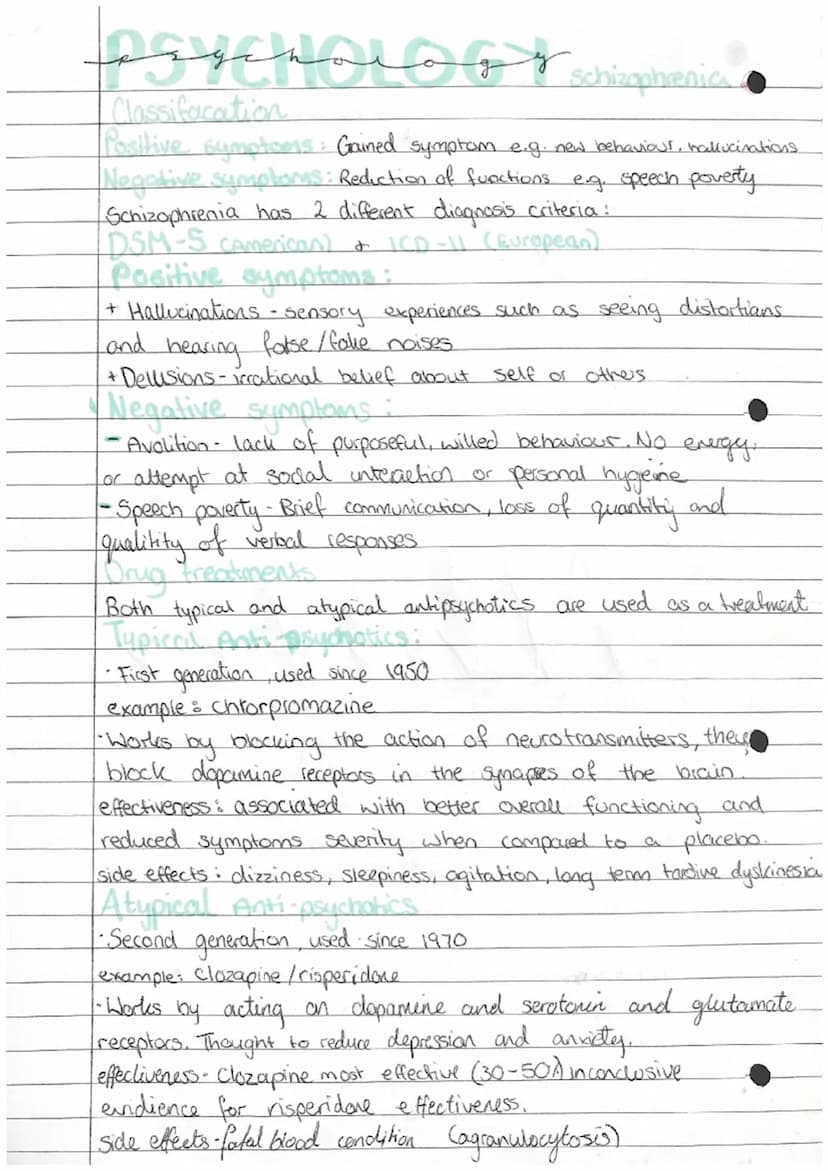 PSYCHOLOGY
psychology
schizophrenia
Classifacation
Positive symptoms: Gained symptom e.g. new behaviour, hallucinations
Negative symptoms: Reduction of functions e.g. speech poverty
Schizophrenia has 2 different diagnosis criteria:
DSM-5 (American) + ICD-11 (European)
Positive symptoms:
+ Hallucinations - sensory experiences such as seeing distortians
and hearing false/fake noises
+ Dellusions - irrational belief about self or others
Negative symptoms:
- Avolition - lack of purposeful, willed behaviour. No energy,
or attempt at social interaction or personal hygeine
- Speech poverty - Brief communication, loss of quantity and
qualitity of verbal responses
Drug treatments
Both typical and atypical antipsychotics are used as a treatment
Typical Anti-psychotics:
· First generation, used since 1950
example: chlorpromazine
· Works by blocking the action of neurotransmitters, they
block dopamine receptors in the synapses of the brain.
effectiveness: associated with better overall functioning and
reduced symptoms severity when compared to a placebo.
side effects: dizziness, sleepiness, agitation, long term tardive dyskinesia
Atypical Anti-psychotics
· Second generation, used since 1970
example: Clozapine/risperidone
· Works by acting on dopamine and serotonin and glutamate
receptors. Thought to reduce depression and anxiety.
effectiveness - Clozapine most effective (30-50%) inconclusive
evidience for risperidone effectiveness.
side effects - fatal blood condition (agranulocytosis)